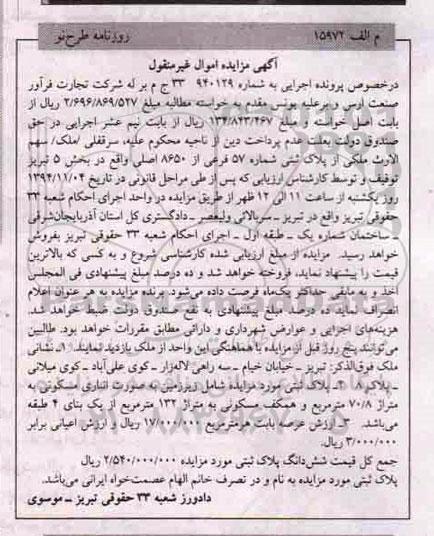 م الف ۱۵۹۷۲
روزنامه طرح‌نو
آگهی مزایده اموال غیرمنقول
درخصوص پرونده اجرایی به شماره ۹۴۰۱۲۹ ۳۳ ج م بر له شرکت تجارت فرآور
صنعت ارس و برعلیه یونس مقدم به خواسته مطالبه مبلغ ۲/۶۹۶/۸۶۹/۵۲۷ ریال از
بابت اصل خواسته و مبلغ ۱۳۴/۸۴۳/۴۶۷ ریال از بابت نیم عشر اجرایی در حق
صندوق دولت بعلت عدم پرداخت دین از ناحیه محکوم علیه، سرقفلی /ملک/ سهم
الارث ملکی از پلاک ثبتی شماره ۵۷ فرعی از ۸۶۵۰ اصلی واقع در بخش ۵ تبریز
توقیف و توسط کارشناس ارزیابی که پس از طی مراحل قانونی در تاریخ ۱۳۹۴/۱۱/۰۴
روز یکشنبه از ساعت ۱۱ الی ۱۲ ظهر از طریق مزایده در واحد اجرای احکام شعبه ۳۳
حقوقی تبریز واقع در تبریز ـ سربالائی ولیعصر ـ دادگستری کل استان آذربایجان‌شرقی
ـ ساختمان شماره یک ـ طبقه اول ـ اجرای احکام شعبه ۳۳ حقوقی تبریز بفروش
خواهد رسید. مزایده از مبلغ ارزیابی شده کارشناسی شروع و به کسی که بالاترین
قیمت را پیشنهاد نماید، فروخته خواهد شد و ده درصد مبلغ پیشنهادی فی المجلس
اخذ و به مابقی حداکثر یک‌ماه فرصت داده می‌شود. برنده مزایده به هر عنوان اعلام
انصراف نماید ده درصد مبلغ پیشنهادی به نفع صندوق دولت ضبط خواهد شد.
هزینه‌های اجرایی و عوارض شهرداری و دارائی مطابق مقررات خواهد بود. طالبین
می‌توانند پنج روز قبل از مزایده با هماهنگی این واحد از ملک بازدید نمایند. ۱ـ نشانی
ملک فوق‌الذکر: تبریز ـ خیابان خیام ـ سه راهی لاله‌زار ـ کوی علی‌آباد ـ کوی میلانی
ـ پلاک ۱۸ ۲ـ پلاک ثبتی مورد مزایده شامل زیرزمین به صورت انباری مسکونی به
متراژ ۷۰/۸ مترمربع و همکف مسکونی به متراژ ۱۳۲ مترمربع از یک بنای ۴ طبقه
می‌باشد. ۳ـ ارزش عرصه بابت هرمترمربع ۱۷/۰۰۰/۰۰۰ ریال و ارزش اعیانی برابر
۳/۰۰۰/۰۰۰ ریال.
جمع کل قیمت شش‌دانگ پلاک ثبتی مورد مزایده ۲/۵۴۰/۰۰۰/۰۰۰ ریال
پلاک ثبتی مورد مزایده به نام و در تصرف خانم الهام عصمت‌خواه ایرانی می‌باشد.
دادورز شعبه ۳۳ حقوقی تبریز ـ موسوی